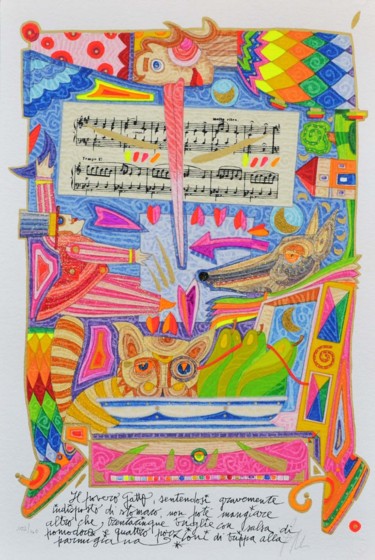 molto vivo
Tempo I.
Il povero gatto, sentendosi gravemente
indisposto di stomaco, non poté mangiare
altro che trentacinque triglie con salsa di
pomodoro e quattro porzioni di trippa alla
parmigiana